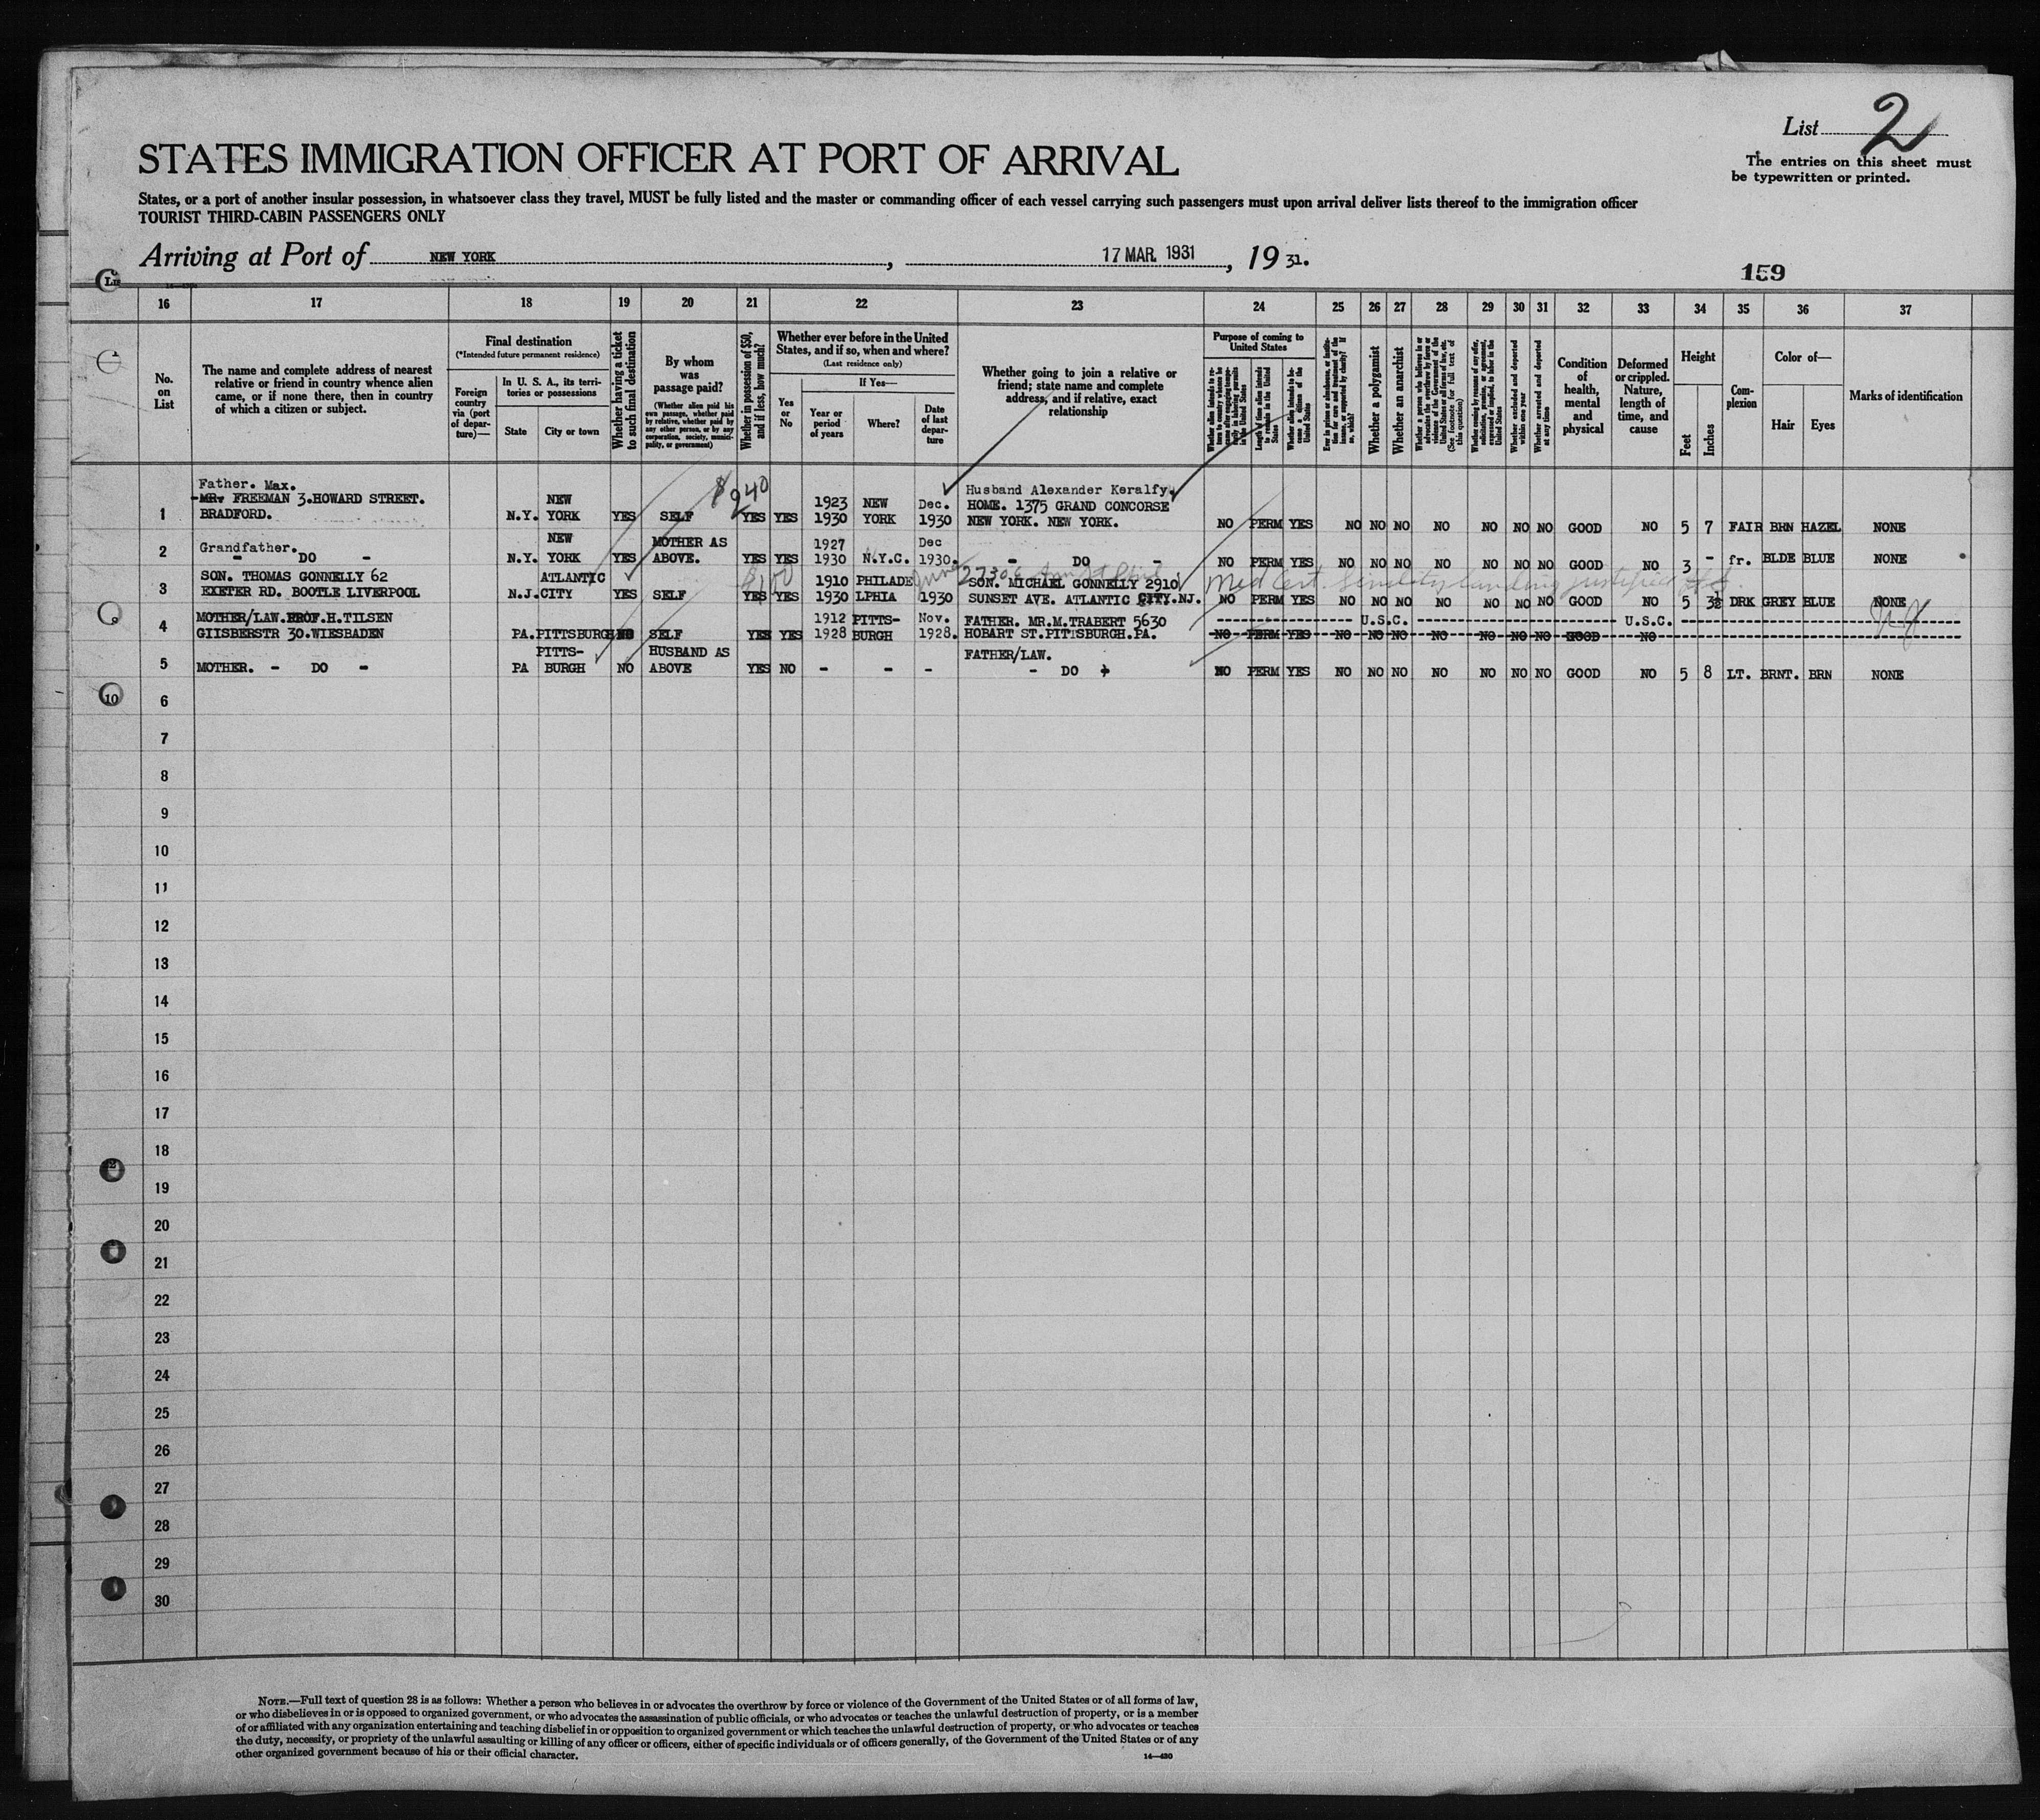 List 2
The entries on this sheet must
be typewritten or printed.
STATES IMMIGRATION OFFICER AT PORT OF ARRIVAL
States, or a port of another insular possession, in whatsoever class they travel, MUST be fully listed and the master or commanding officer of each vessel carrying such passengers must upon arrival deliver lists thereof to the immigration officer
TOURIST THIRD-CABIN PASSENGERS ONLY
Arriving at Port of NEW YORK, 17 MAR. 1931, 19 31.
159
16 17 18 19 20 21 22 23 24 25 26 27 28 29 30 31 32 33 34 35 36 37
No. on List
The name and complete address of nearest
relative or friend in country whence alien
came, or if none there, then in country
of which a citizen or subject.
Final destination
(*Intended future permanent residence)
Foreign country via (port of departure)—
In U. S. A., its territories or possessions
State
City or town
Whether having a ticket to such final destination
By whom was passage paid?
(Whether alien paid his own passage, whether paid by relative, whether paid by any other person, or by any corporation, society, municipality, or government)
Whether in possession of $50, and if less, how much?
Whether ever before in the United States, and if so, when and where?
(Last residence only)
Yes or No
If Yes—
Year or period of years
Where?
Date of last departure
Whether going to join a relative or
friend; state name and complete
address, and if relative, exact
relationship
Purpose of coming to United States
Length of time alien intends to remain in the United States
Whether alien intends to become a citizen of the United States
Whether a polygamist
Whether an anarchist
(See footnote for full text of this question)
Whether excluded and deported within one year
Whether arrested and deported at any time
Condition of health, mental and physical
Deformed or crippled. Nature, length of time, and cause
Height
Feet
Inches
Complexion
Color of—
Hair
Eyes
Marks of identification
Father. Max. $240 Husband Alexander Keralfy.
MR. FREEMAN 3.HOWARD STREET. NEW 1923 NEW Dec. HOME. 1375 GRAND CONCORSE
1 BRADFORD. N.Y. YORK YES SELF YES YES 1930 YORK 1930 NEW YORK. NEW YORK. NO PERM YES NO NO NO NO NO NO NO GOOD NO 5 7 FAIR BRN HAZEL NONE
Grandfather. NEW MOTHER AS 1927 Dec
2 - DO - N.Y. YORK YES ABOVE. YES YES 1930 N.Y.C. 1930. - DO - NO PERM YES NO NO NO NO NO NO NO GOOD NO 3 - fr. BLDE BLUE NONE
SON. THOMAS GONNELLY 62 ATLANTIC $100 1910 PHILADE June SON. MICHAEL GONNELLY 2910 Med Cert. Senility landing justified
3 EXETER RD. BOOTLE LIVERPOOL N.J. CITY YES SELF YES YES 1930 LPHIA 1930 SUNSET AVE. ATLANTIC CITY.NJ. NO PERM YES NO NO NO NO NO NO NO GOOD NO 5 3½ DRK GREY BLUE NONE
MOTHER/LAW.PROF.H.TILSEN 1912 PITTS- Nov. FATHER. MR.M.TRABERT 5630 U.S.C. U.S.C.
4 GIISBERSTR 30.WIESBADEN PA. PITTSBURGH NO SELF YES YES 1928 BURGH 1928. HOBART ST.PITTSBURGH.PA. NO PERM YES NO NO NO NO NO NO NO GOOD NO
PITTS- HUSBAND AS FATHER/LAW.
5 MOTHER. - DO - PA BURGH NO ABOVE YES NO - - - - DO - NO PERM YES NO NO NO NO NO NO NO GOOD NO 5 8 LT. BRNT. BRN NONE
6
7
8
9
10
11
12
13
14
15
16
17
18
19
20
21
22
23
24
25
26
27
28
29
30
NOTE.—Full text of question 28 is as follows: Whether a person who believes in or advocates the overthrow by force or violence of the Government of the United States or of all forms of law,
or who disbelieves in or is opposed to organized government, or who advocates the assassination of public officials, or who advocates or teaches the unlawful destruction of property, or is a member
of or affiliated with any organization entertaining and teaching disbelief in or opposition to organized government or which teaches the unlawful destruction of property, or who advocates or teaches
the duty, necessity, or propriety of the unlawful assaulting or killing of any officer or officers, either of specific individuals or of officers generally, of the Government of the United States or of any
other organized government because of his or their official character.
14—430